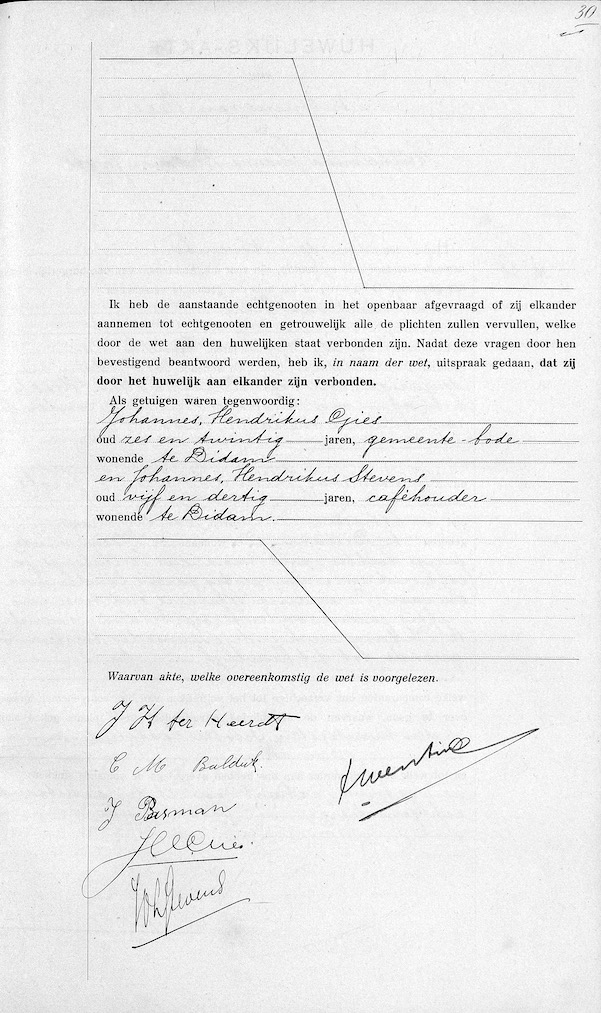 30
Ik heb de aanstaande echtgenooten in het openbaar afgevraagd of zij elkander
aannemen tot echtgenooten en getrouwelijk alle de plichten zullen vervullen, welke
door de wet aan den huwelijken staat verbonden zijn. Nadat deze vragen door hen
bevestigend beantwoord werden, heb ik, in naam der wet, uitspraak gedaan, dat zij
door het huwelijk aan elkander zijn verbonden.
Als getuigen waren tegenwoordig:
Johannes, Hendrikus Gies
oud zes en twintig jaren, gemeente-bode
wonende te Didam
en Johannes, Hendrikus Stevens
oud vijf en dertig jaren, caféhouder
wonende te Didam.
Waarvan akte, welke overeenkomstig de wet is voorgelezen.
J H ter Heerdt
C M
J